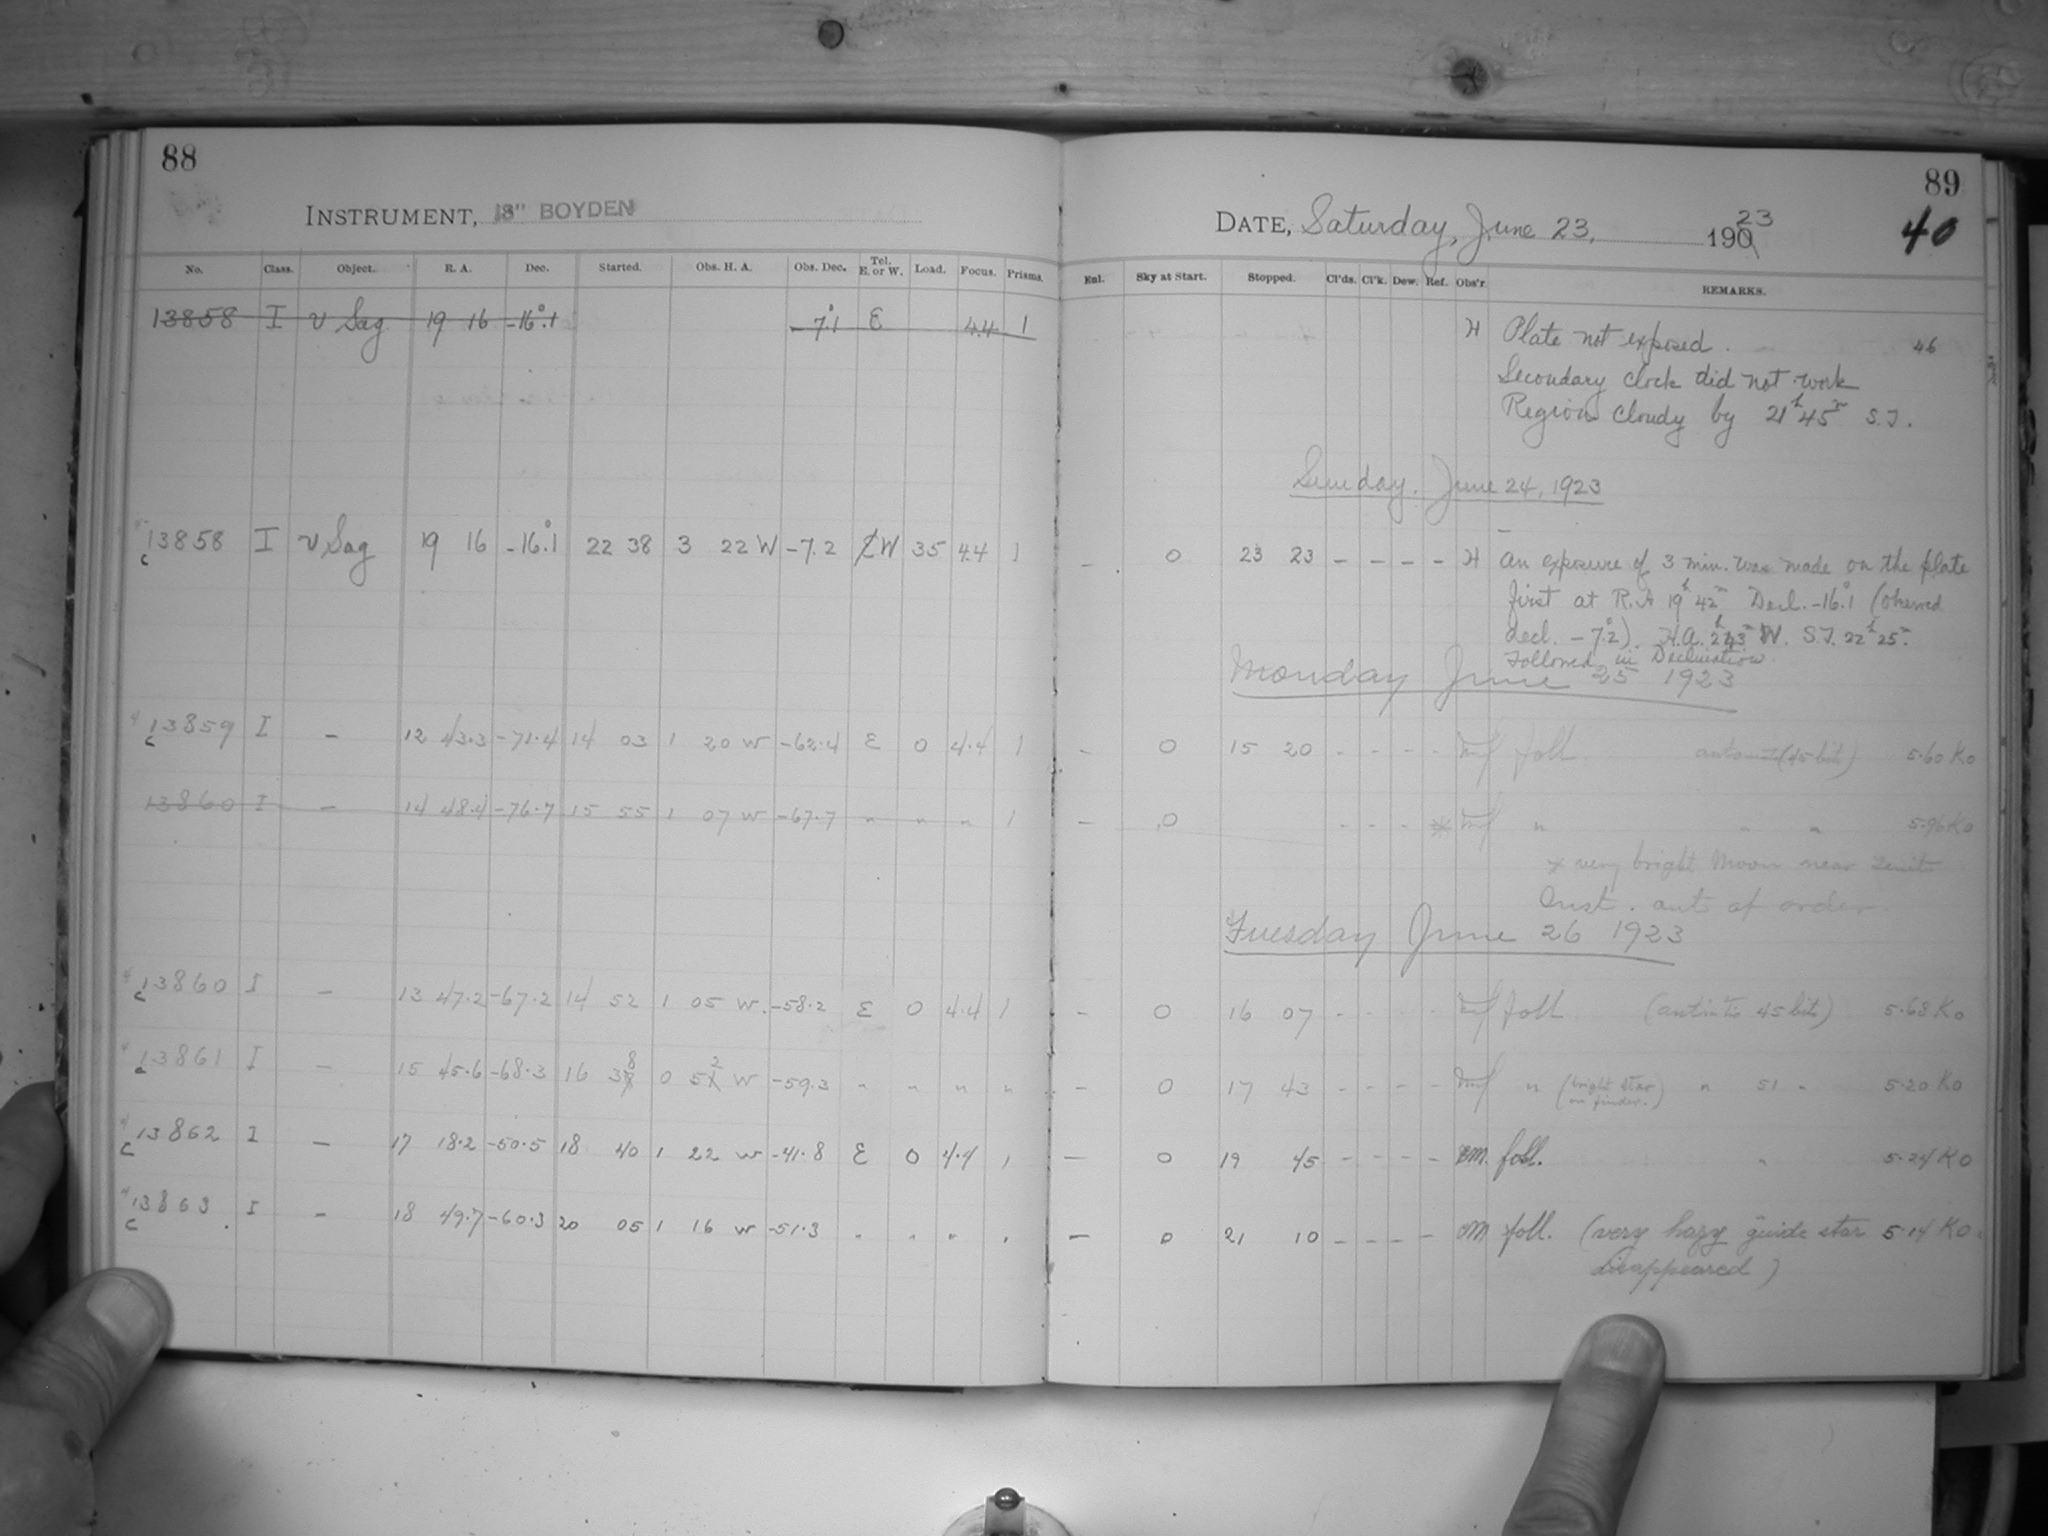 88
INSTRUMENT, 13" BOYDEN
No. Class. Object. R. A. Dec. Started. Obs. H. A. Obs. Dec. Tel. E. or W. Load. Focus. Prisms.
13858 I υ Sag 19 16 -16°.1 7°.1 E 4.4 1
13858 I υ Sag 19 16 -16°.1 22 38 3 22 W -7.2 E W 35 4.4 1
c
13859 I - 12 43.3 -71.4 14 03 1 20 W -62.4 E 0 4.4 1
c
13860 I - 14 48.4 -76.7 15 55 1 07 W -67.7 " " " 1
13860 I - 13 47.2 -67.2 14 52 1 05 W. -58.2 E 0 4.4 1
c
13861 I - 15 45.6 -68.3 16 38 0 52 W -59.3 " " " "
c
13862 I - 17 18.2 -50.5 18 40 1 22 W -41.8 E 0 4.4 1
c
13863. I - 18 49.7 -60.3 20 05 1 16 W -51.3 " " " "
c
89
40
DATE, Saturday, June 23, 1923
Enl. Sky at Start. Stopped. Cl'ds. Cl'k. Dew. Ref. Obs'r. REMARKS.
H Plate not exposed. 46
Secondary clock did not work
Region cloudy by 21h 45m S.T.
Sunday. June 24, 1923
- 0 23 23 - - - - H An exposure of 3 min. was made on the plate
first at R.A 19h 42m Decl. -16°.1 (observed
decl. -7°.2). H.A. 2h 43m W. S.T. 22h 25m.
Followed in Declination.
Monday June 25 1923
- 0 15 20 - - - - foll. (45 bits) 5.60 Ko
- 0 - - - * " " " 5.96 Ko
x very bright Moon near Zenith
Inst. out of order
Tuesday June 26 1923
- 0 16 07 - - - - foll (45 bits) 5.68 Ko
- 0 17 43 - - - - " (bright star on finder.) " 51 " 5.20 Ko
- 0 19 45 - - - - M. foll. " 5.24 Ko
- 0 21 10 - - - - M foll. (very hazy guide star 5.14 Ko
disappeared)